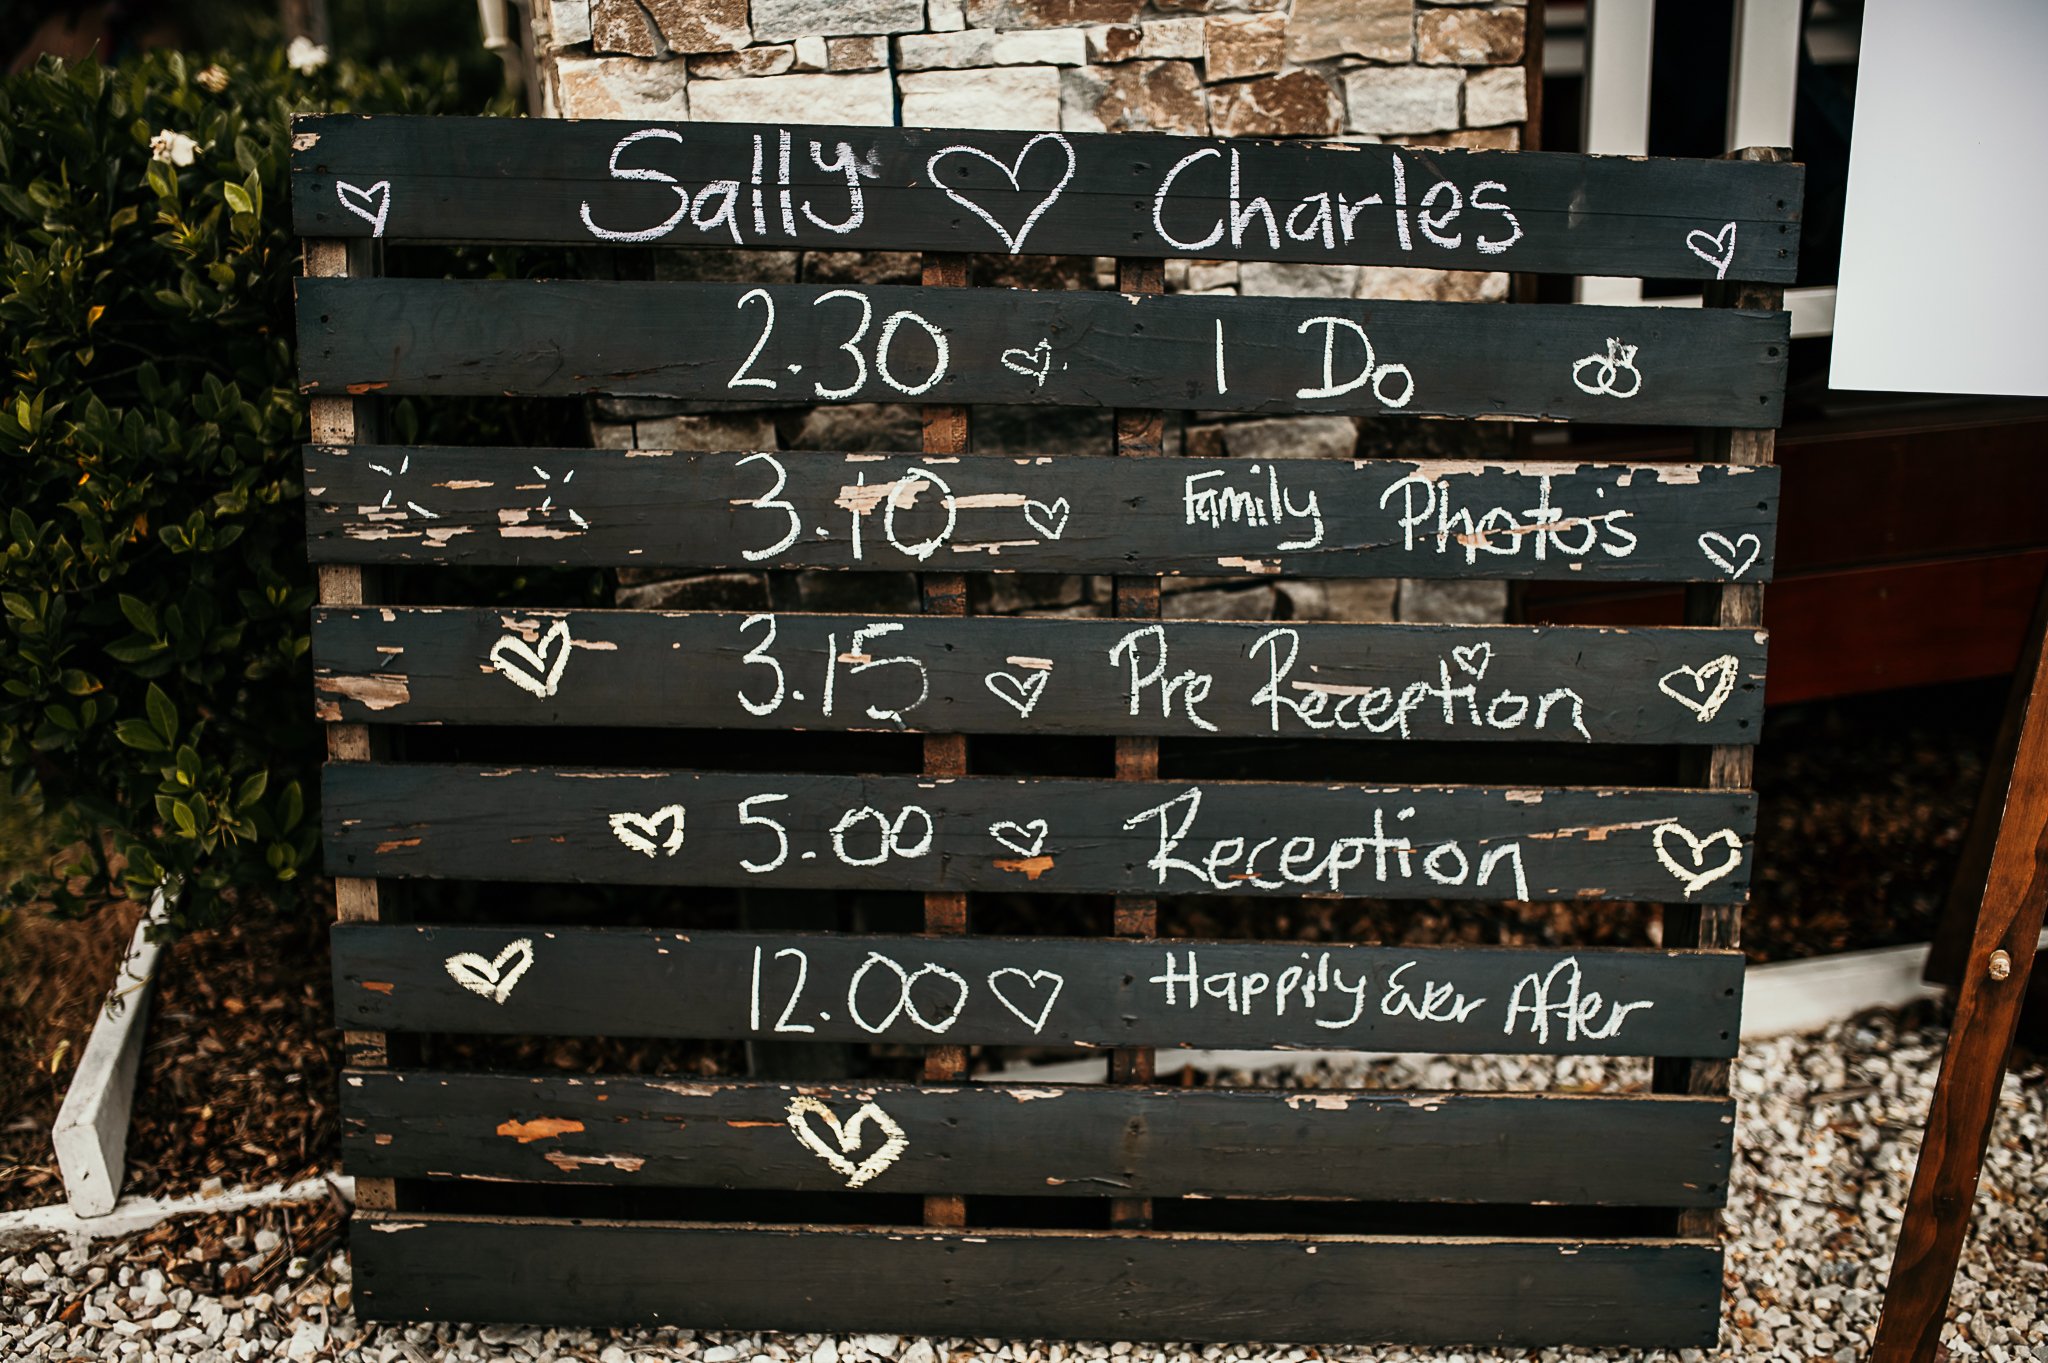 Sally Charles
2.30 I Do
3.10 Family Photo's
3.15 Pre Reception
5.00 Reception
12.00 Happily Ever After